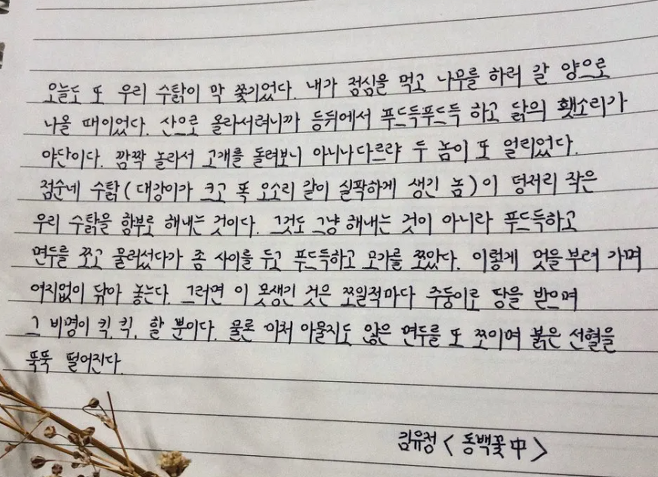 오늘도 또 우리 수탉이 막 쫓기었다. 내가 점심을 먹고 나무를 하러 갈 양으로
나올 때이었다. 산으로 올라서려니까 등뒤에서 푸드득푸드득 하고 닭의 횃소리가
야단이다. 깜짝 놀라서 고개를 돌려보니 아니나다르랴 두 놈이 또 얼리었다.
점순네 수탉(대강이가 크고 똑 오소리 같이 실팍하게 생긴 놈)이 덩저리 작은
우리 수탉을 함부로 해내는 것이다. 그것도 그냥 해내는 것이 아니라 푸드득하고
면두를 쪼고 물러섰다가 좀 사이를 두고 푸드득하고 모가지를 쪼았다. 이렇게 멋을 부려 가며
여지없이 닦아 놓는다. 그러면 이 못생긴 것은 쪼일적마다 주둥이로 땅을 받으며
그 비명이 킥, 킥, 할 뿐이다. 물론 미처 아물지도 않은 면두를 또 쪼이며 붉은 선혈을
뚝뚝 떨어진다.
김유정 < 동백꽃 中 >